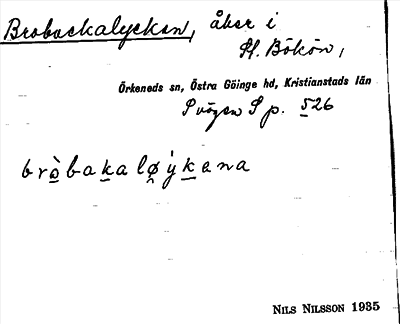 Brobackalyckan, åker i
St. Bökön,
Örkeneds sn, Östra Göinge hd, Kristianstads län
S p. 526
NILS NILSSON 1935